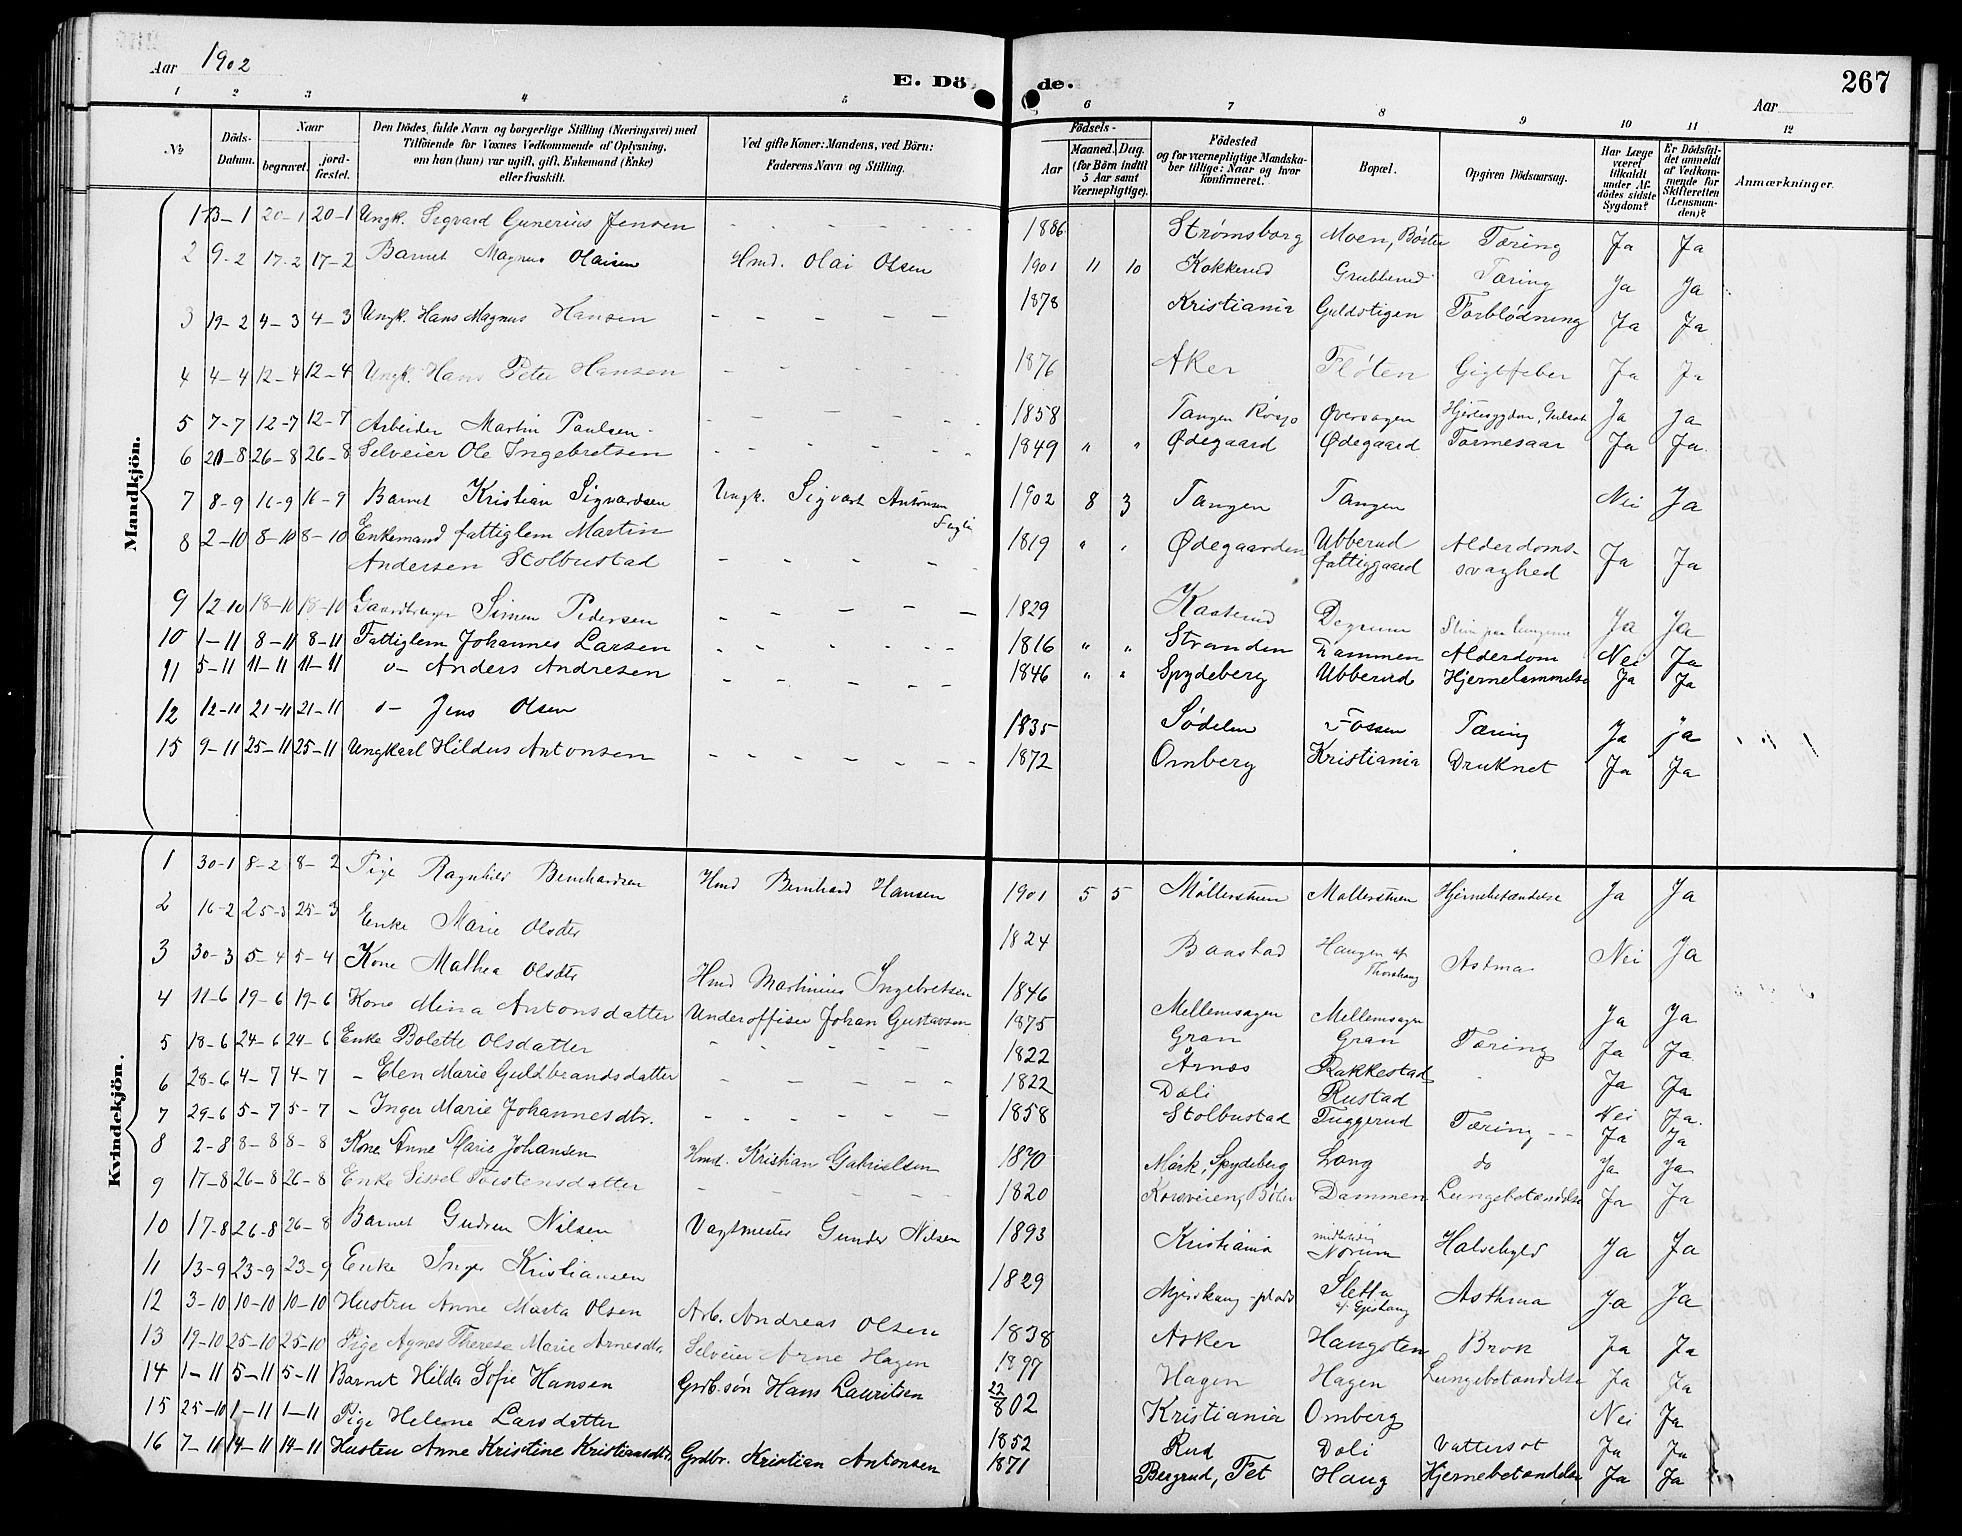 Aar 1902
E. Döde.
267
Aar
1 2 3 4 5 6 7 8 9 10 11 12
No
Döds-Datum.
Naar
begravet. jord-fæstet.
Den Dödes fulde Navn og borgerlige Stilling (Næringsvei) med
Tilföiende for Voxnes Vedkommende af Oplysning,
om han (hun) var ugift, gift, Enkemand (Enke)
eller fraskilt.
Ved gifte Koner: Mandens, ved Börn:
Faderens Navn og Stilling.
Födsels-
Aar Maaned. Dag.
(for Börn indtil
5 Aar samt
Værnepligtige).
Födested
og for værnepligtige Mandska-
ber tillige: Naar og hvor
konfirmeret.
Bopæl.
Opgiven Dödsaarsag.
Har Læge
været
tilkaldt
under Af-
dödes sidste
Sygdom?
Er Dödsfal-
det anmeldt
af Vedkom-
mende for
Skifteretten
(Lensman-
den)?
Anmærkninger.
Mandkjön.
1 13-1 20-1 20-1 Ungk. Sigvard Gunerius Jensen 1886 Strømsborg Moen, Bøster Tæring Ja Ja
2 9-2 17-2 17-2 Barnet Magnus Olaisen Hmd. Olai Olsen 1901 11 10 Kokkerud Grubberud Tæring Ja Ja
3 19-2 4-3 4-3 Ungk. Hans Magnus Hansen 1878 Kristiania Guldstigen Forblödning Ja Ja
4 4-4 12-4 12-4 Ungk. Hans Peter Hansen 1876 Aker Fløten Gigtfeber Ja Ja
5 7-7 12-7 12-7 Arbeider Martin Paulsen 1858 Tangen Øversagen Hjertesygdom, Gulsot Ja Ja
6 20-8 26-8 26-8 Selveier Ole Ingebretsen 1849 " " Ødegaard Ødegaard Tarmesaar Ja Ja
7 8-9 16-9 16-9 Barnet Kristian Sigvardsen Ungk. Sigvart Antonsen 1902 8 3 Tangen Tangen Nei Ja
8 2-10 8-10 8-10 Enkemand fattiglem Martin 1819 " " Ødegaarden Ubberud Alderdoms-
Andersen Stolbustad fattiggaard svaghed Ja Ja
9 12-10 18-10 18-10 Simen Pedersen 1829 Kaaterud Degrum Slim paa lungerne Ja Ja
10 1-11 8-11 8-11 Fattiglem Johannes Larsen 1816 " " Stranden Dammen Alderdom Nei Ja
11 5-11 11-11 11-11 o- Anders Andresen 1846 " " Spydeberg Ubberud Hjernelammelse Ja Ja
12 12-11 21-11 21-11 o- Jens Olsen 1835 Sødelen Fossen Tæring Ja Ja
15 9-11 25-11 25-11 Ungkarl Hildus Antonsen 1872 Omberg Kristiania Druknet Ja Ja
Kvindekjön.
1 30-1 8-2 8-2 Pige Ragnhild Bernhardsen Hmd Bernhard Hansen 1901 5 5 Møllerstuen Møllerstuen Hjernebetændelse Ja Ja
2 16-2 25-3 25-3 Enke Marie Olsdtr 1824 Baastad Haugen af Thorshaug Astma Nei Ja
3 30-3 5-4 5-4 Kone Mathea Olsdtr Hmd Martinius Ingebretsen 1846 Mellemsagen Mellemsagen Ja Ja
4 11-6 19-6 19-6 Kone Mina Antonsdatter Underoffiser Johan Gustavsen 1875 Gran Gran Tæring Ja Ja
5 18-6 24-6 24-6 Enke Bolette Olsdatter 1822 Årnæs Rakkestad Ja Ja
6 28-6 4-7 4-7 - Elen Marie Guldbrandsdatter 1822 Dæli Rustad Nei Ja
7 29-6 5-7 5-7 - Inger Marie Johannesdtr. 1858 Stolbustad Tuggerud Tæring -- Ja Ja
8 2-8 8-8 8-8 Kone Anne Marie Johansen Hmd. Kristian Gabrielsen 1870 Mørk, Spydeberg Lang do Ja Ja
9 17-8 26-8 26-8 Enke Sissel Toistensdatter 1820 Korsveien, Dammen Lungebetændelse Ja Ja
10 17-8 26-8 26-8 Barnet Gudrun Nilsen Vagtmester Gunder Nilsen 1893 Kristiania midlertidig Norum Halsebyld Ja Ja
11 13-9 23-9 23-9 Enke Inger Kristiansen 1829 Sletta Asthma Ja Ja
12 3-10 10-10 10-10 Hustru Anne Marta Olsen Arb. Andreas Olsen 1838 Asker Haugsten Brok Ja Ja
13 19-10 25-10 25-10 Pige Agnes Therese Marie Arnesdtr. Selveier Arne Hagen 1897 Hagen Hagen Lungebetændelse Ja Ja
14 1-11 5-11 5-11 Barnet Hilda Sofie Hansen Grdb.søn Hans Lauritsen 22/8 02 Kristiania Omberg Nei Ja
15 25-10 1-11 1-11 Pige Helene Larsdatter 1852 Rud Dæli Vattersot Ja Ja
16 7-11 14-11 14-11 Hustru Anne Kristine Kristiansdtr. Grdbr. Kristian Antonsen 1871 Bergrud, Fet Haug Hjernebetændelse Ja Ja